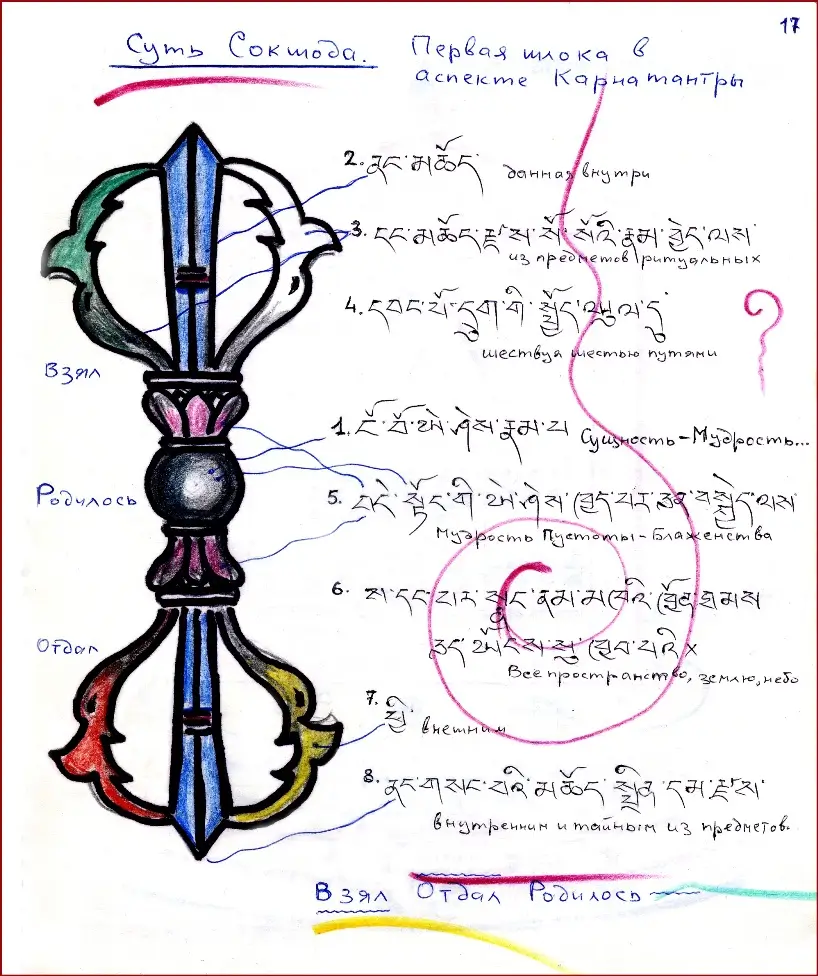 17
Суть Сокшода.
Первая шлока в
аспекте Карнатантры
2. ནང་མཆོད་
данная внутри
3. དང་མཆོད་རྫས་སོ་སོའི་རྣམ་བྱེད་ལས་
из предметов ритуальных
4. དབང་པོ་དྲུག་གི་སྤྱོད་ཡུལ་དུ་
шествуя шестью путями
?
Взял
1. ངོ་བོ་ཡེ་ཤེས་རྣམ་པ
Сущность-Мудрость...
Родилось
5. བདེ་སྟོང་གི་ཡེ་ཤེས་ཁྱད་པར་ཅན་བསྐྱེད་པས
Мудрость Пустоты-Блаженства
6. ས་དང་བར་སྣང་ནམ་མཁའི་ཁྱོན་ཐམས
ཅད་ཡོངས་སུ་ཁྱབ་པའི ×
Всё пространство, землю, небо
Отдал
7. ཕྱི་
внешним
8. ནང་གསང་བའི་མཆོད་སྤྲིན་དམ་རྫས་
внутренним и тайным из предметов.
Взял Отдал Родилось